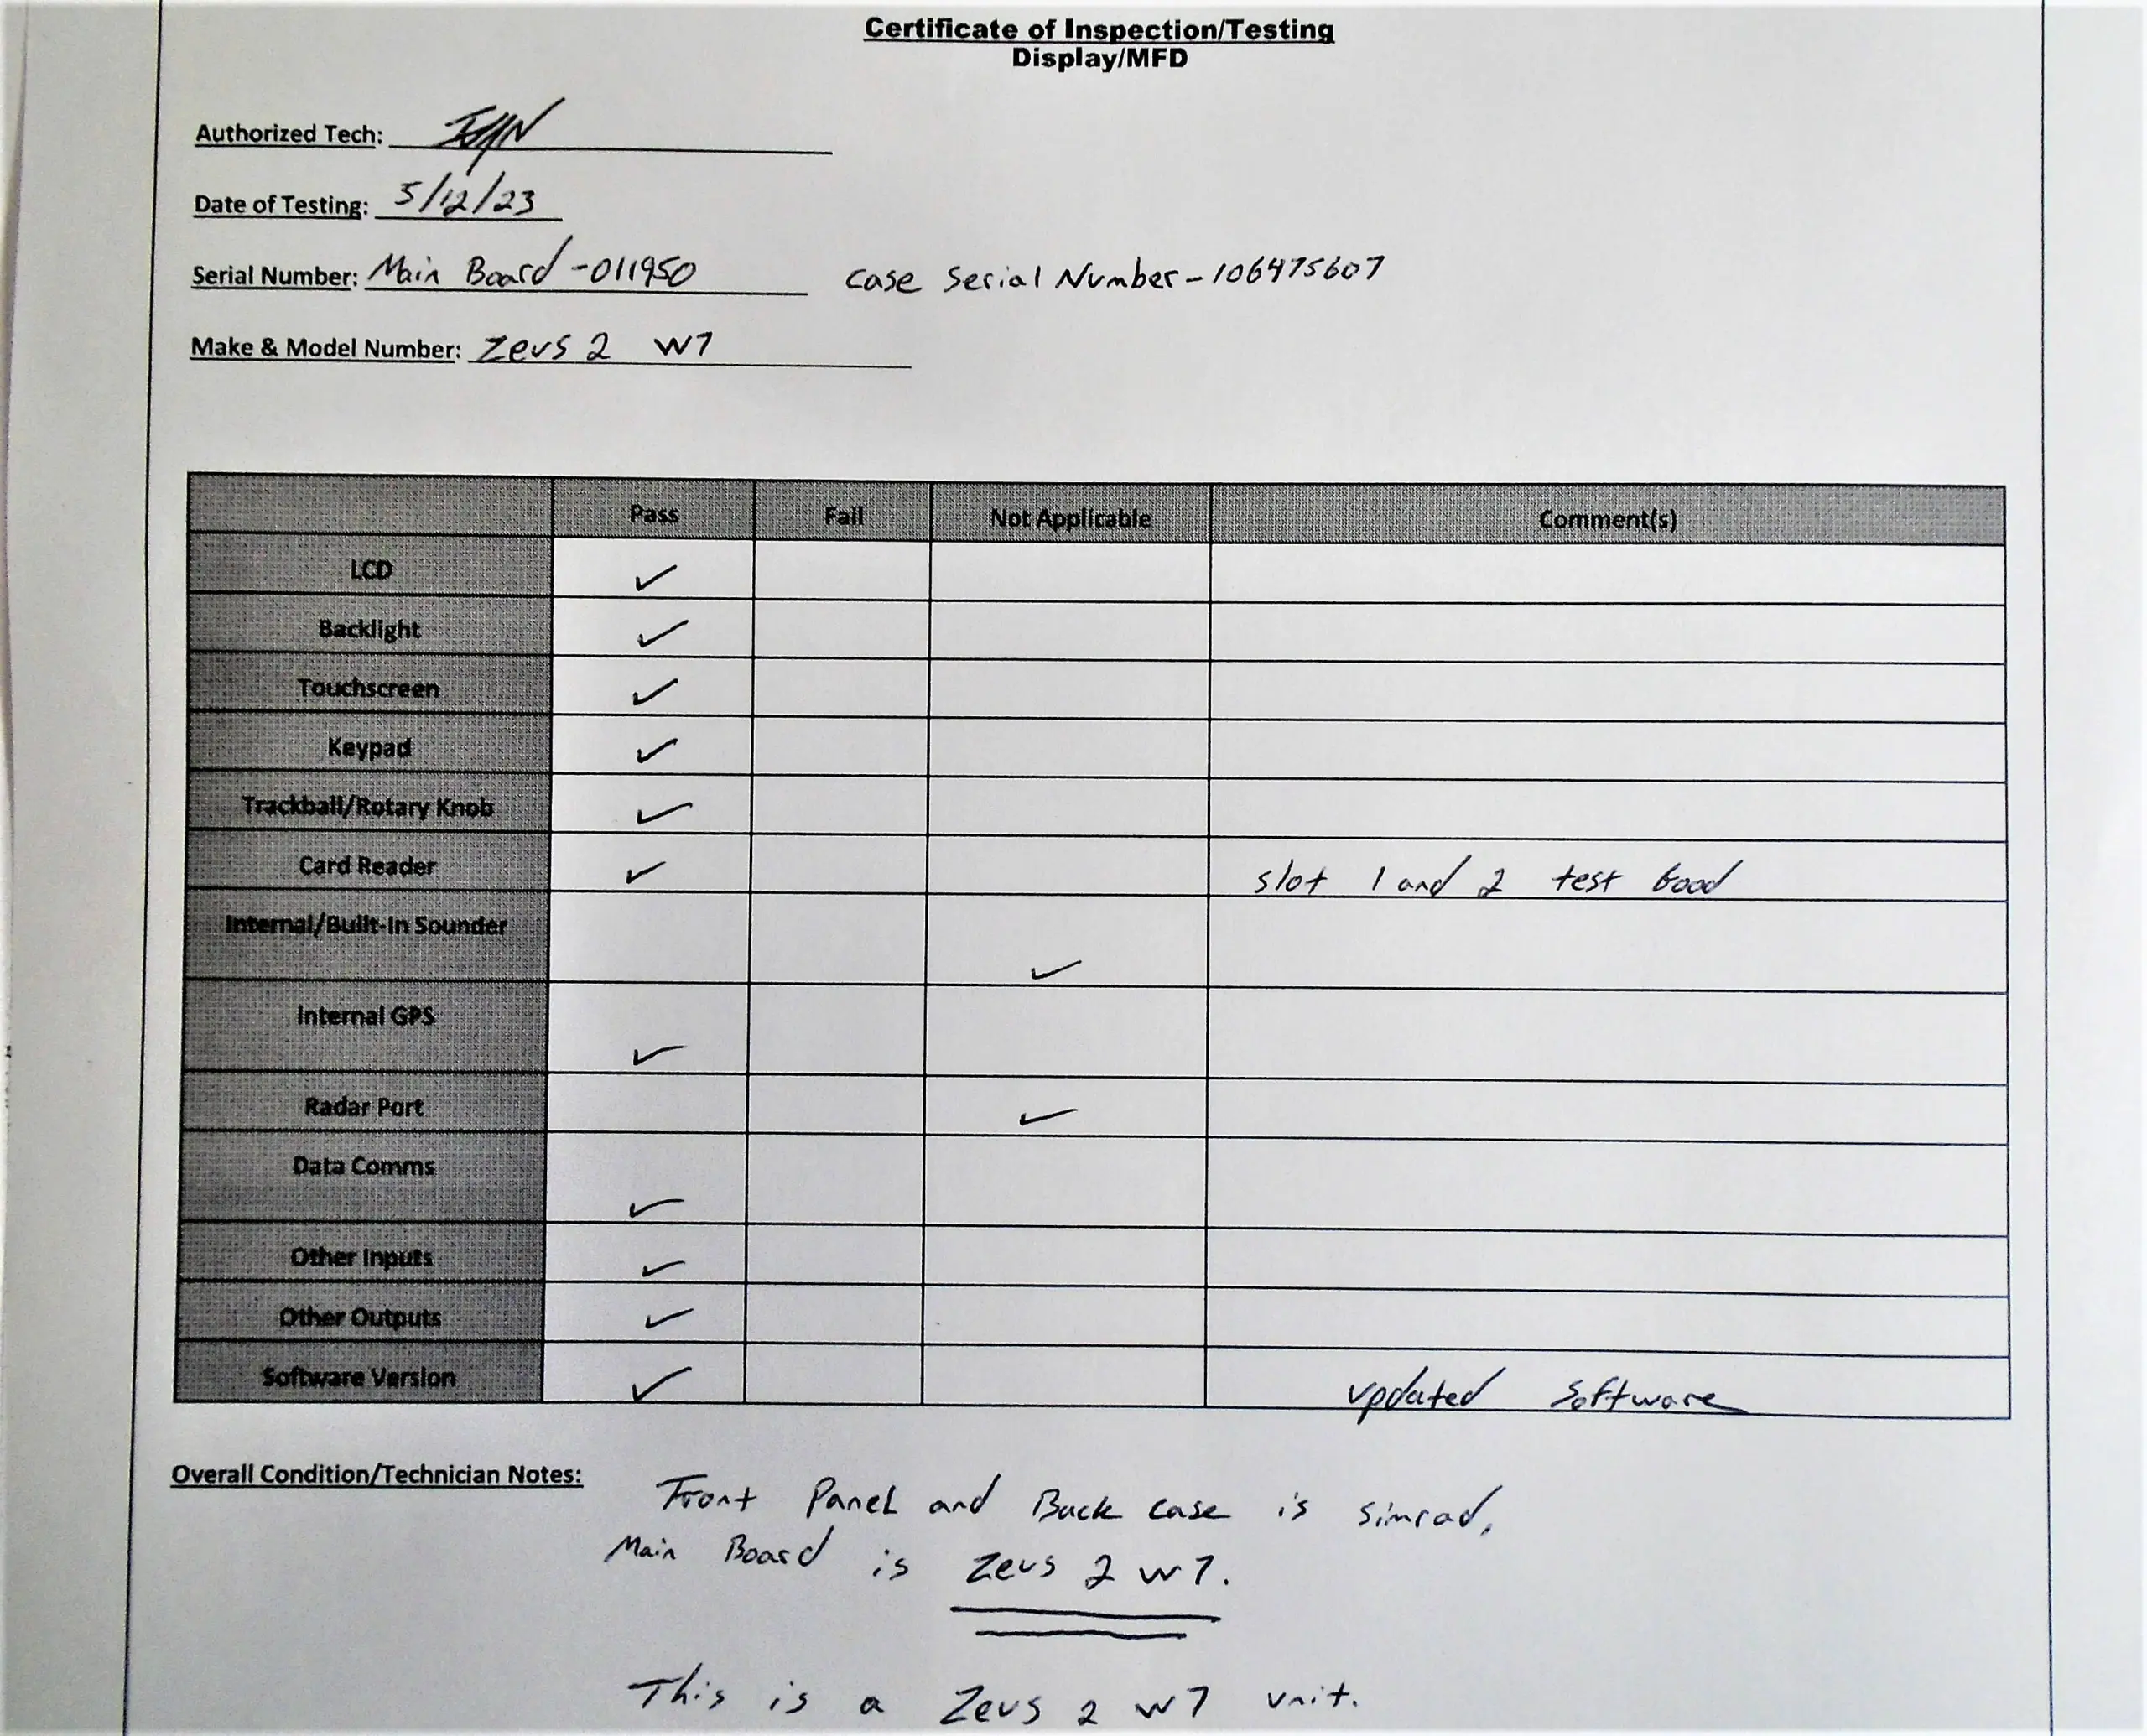 Certificate of Inspection/Testing
Display/MFD
Authorized Tech:
Date of Testing: 5/12/23
Serial Number: Main Board -011950 Case Serial Number - 106475607
Make & Model Number: Zeus 2 W7
Pass Fail Not Applicable Comment(s)
LCD ✓
Backlight ✓
Touchscreen ✓
Keypad ✓
Trackball/Rotary Knob ✓
Card Reader ✓ slot 1 and 2 test Good
Internal/Built-In Sounder ✓
Internal GPS ✓
Radar Port ✓
Data Comms ✓
Other Inputs ✓
Other Outputs ✓
Software Version ✓ updated Software
Overall Condition/Technician Notes: Front Panel and Back case is simrad,
Main Board is Zeus 2 W7.
This is a Zeus 2 W7 unit.